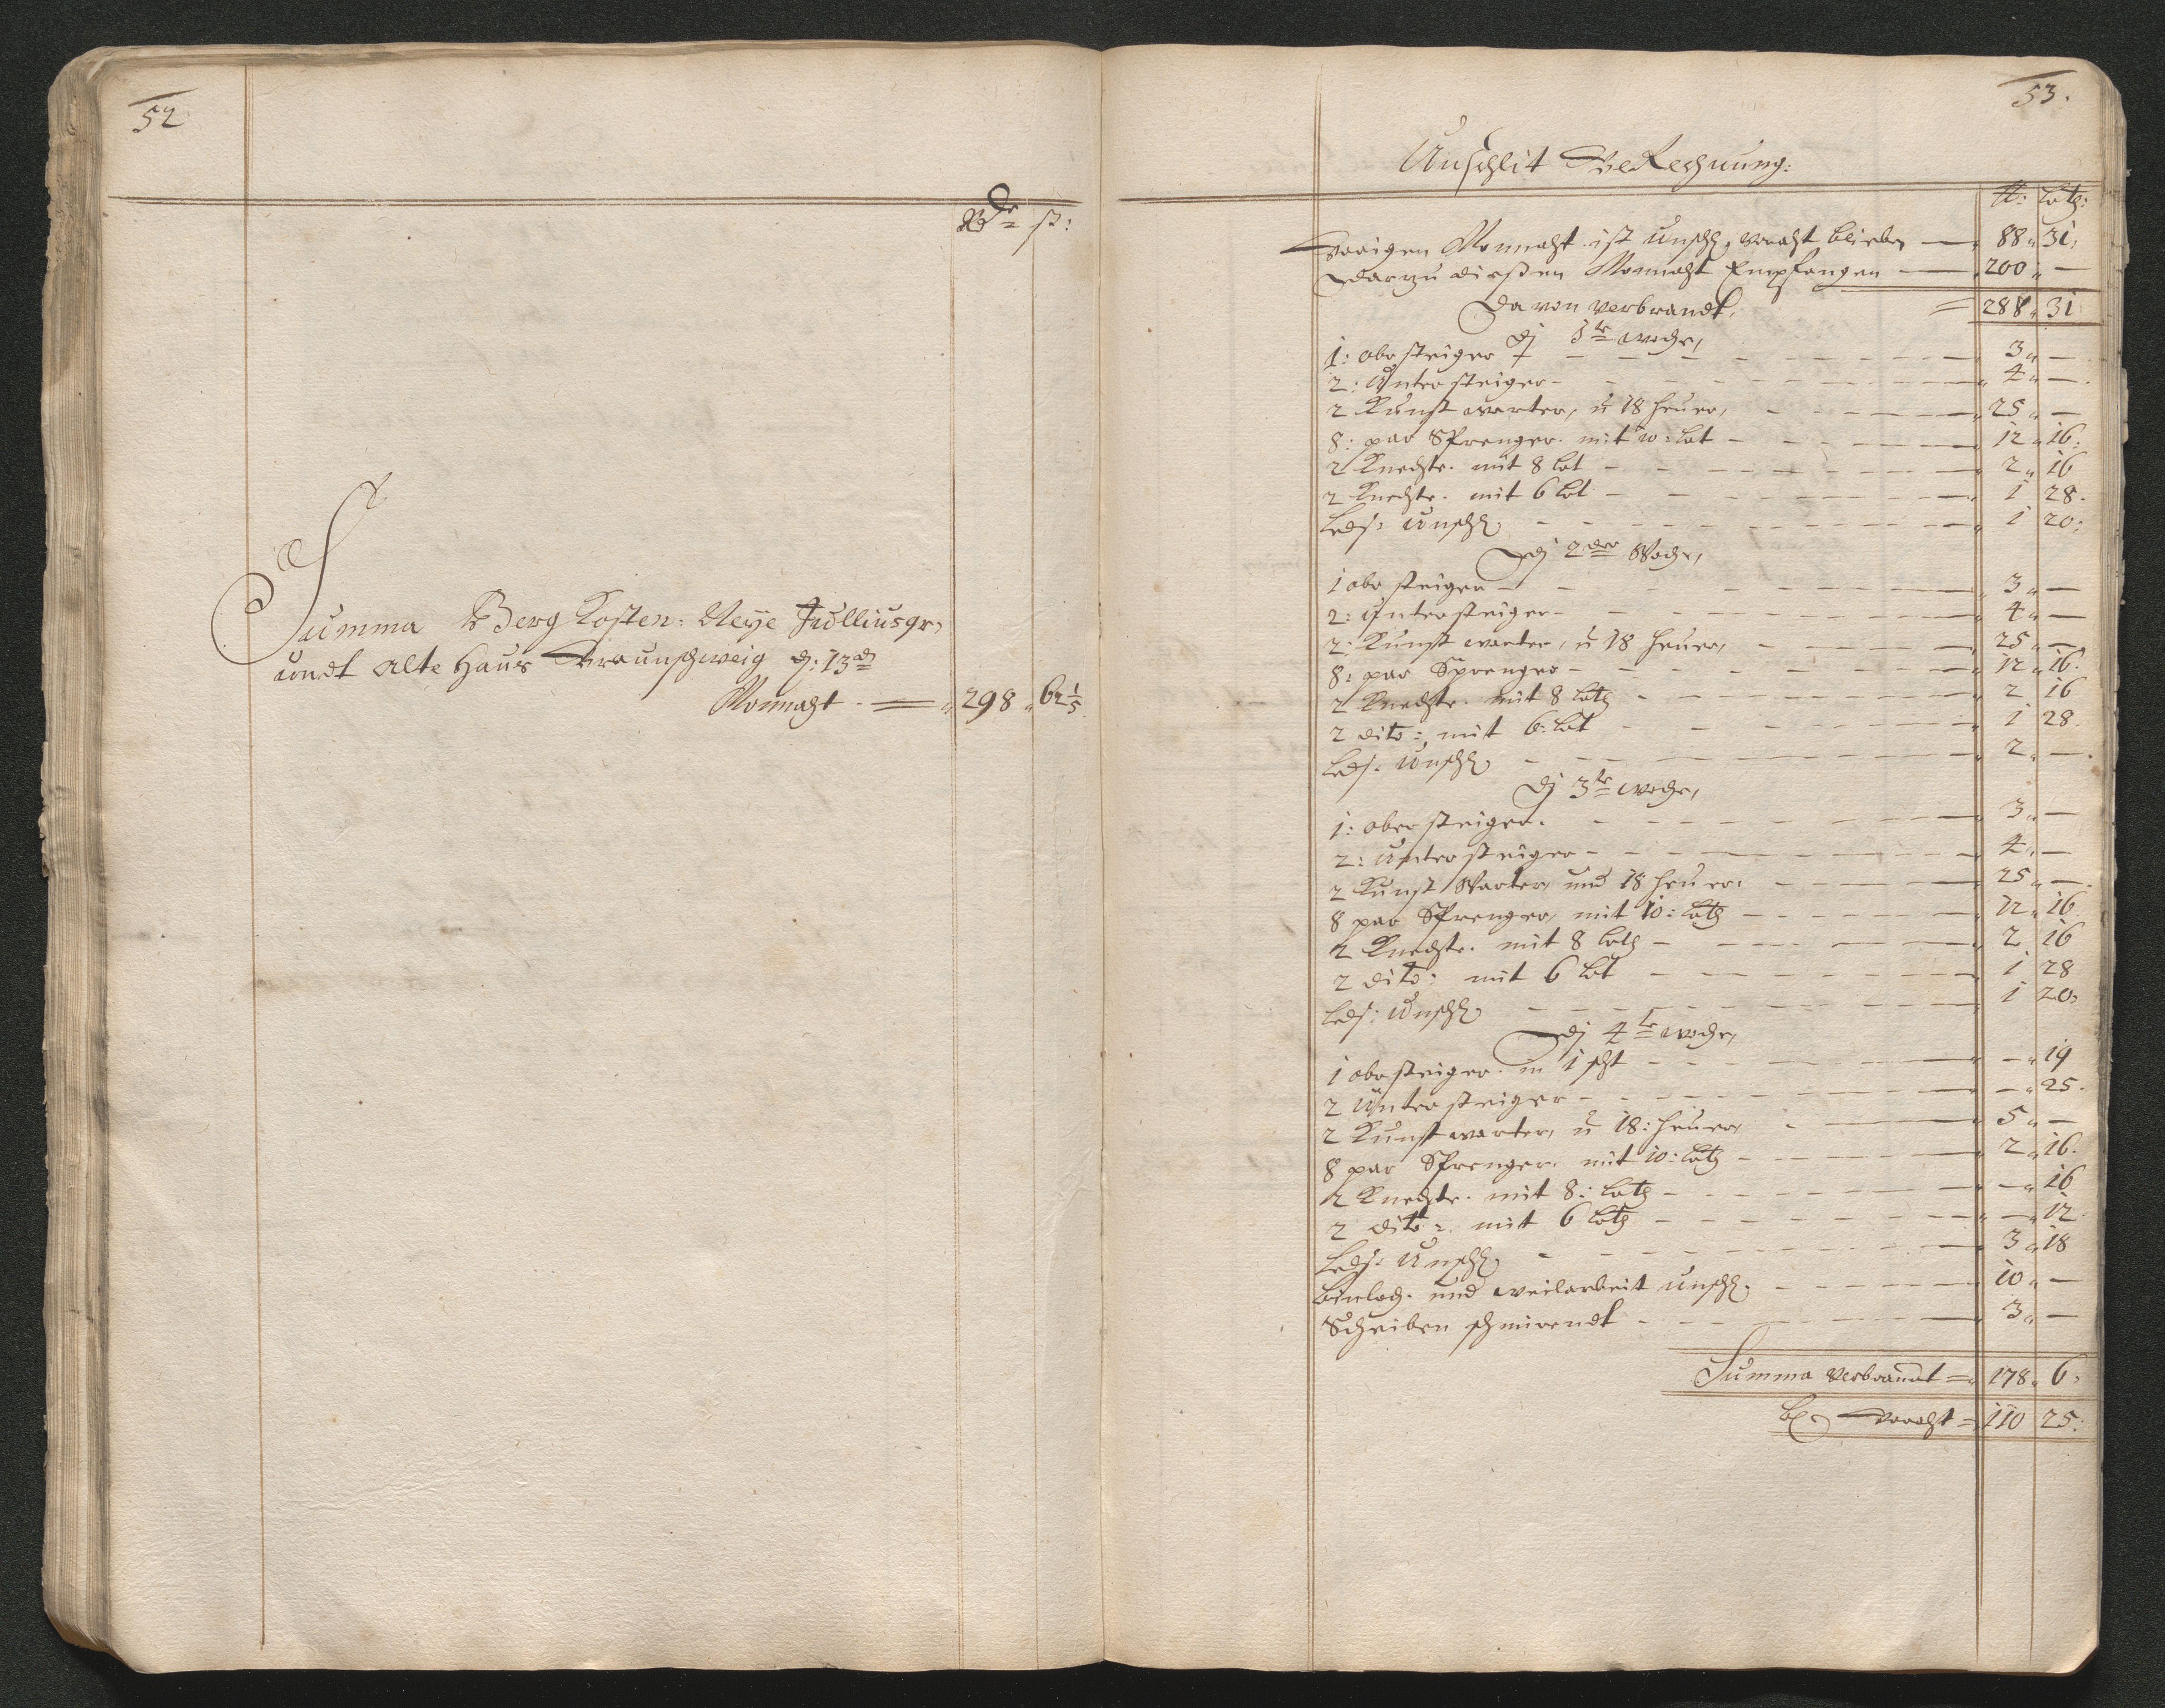 52
Rd ß:
Summa Berg Kosten: Neye Julliusgr,
undt Alte Haus Braunschweig d: 13
Monnaht. 298 62 1/5
53.
Unschlit BeRechnung:
tt: Loth:
Vorigen Monnaht ist Unschl, Vorraht blieben 88 31
Darzu dießen Monnaht Empfangen 200 —
288 31
Da von verbrandt,
Dj 1te woche,
1: obersteiger 3 —
2: Untersteiger 4 —
2 Kunst warter, u 18 heuer, 25 —
8: par Sprenger. mit 10: lot 12 16.
2 Knechte. mit 8 lot 2 16
2 Knechte. mit 6 lot 1 28.
Unschl 1 20:
Dj 2der Woche,
1 obersteiger 3 —
2: Untersteiger 4 —
2: Kunst warter, u 18 heuer, 25 —
8: par Sprenger 12 16.
2 Knechte. mit 8 loth 2 16
2 dito: mit 6: lot 1 28.
Unschl 2 —
Dj 3te woche,
1: obersteiger. 3 —
2: Untersteiger 4 —
2 Kunst Warter, und 18 heuer. 25 —
8 par Sprenger, mit 10: loth 12 16
2 Knechte. mit 8 loth 2 16
2 dito: mit 6 lot 1 28
Unschl 1 20:
Dj 4te woche,
1 obersteiger. in 1 scht — 19
2 Untersteiger — 25.
2 Kunst warter, u 18: heuer, 5 —
8 par Sprenger. mit 10: loth 2 16.
2 Knechte. mit 8: loth — 16
2 dito: mit 6 loth — 12
Unschl 3 18
und weilarbeit Unschl. 10 —
Scheiben schmirendt 3 —
Summa verbrandt = 178 6:
Vorraht = 110 25: